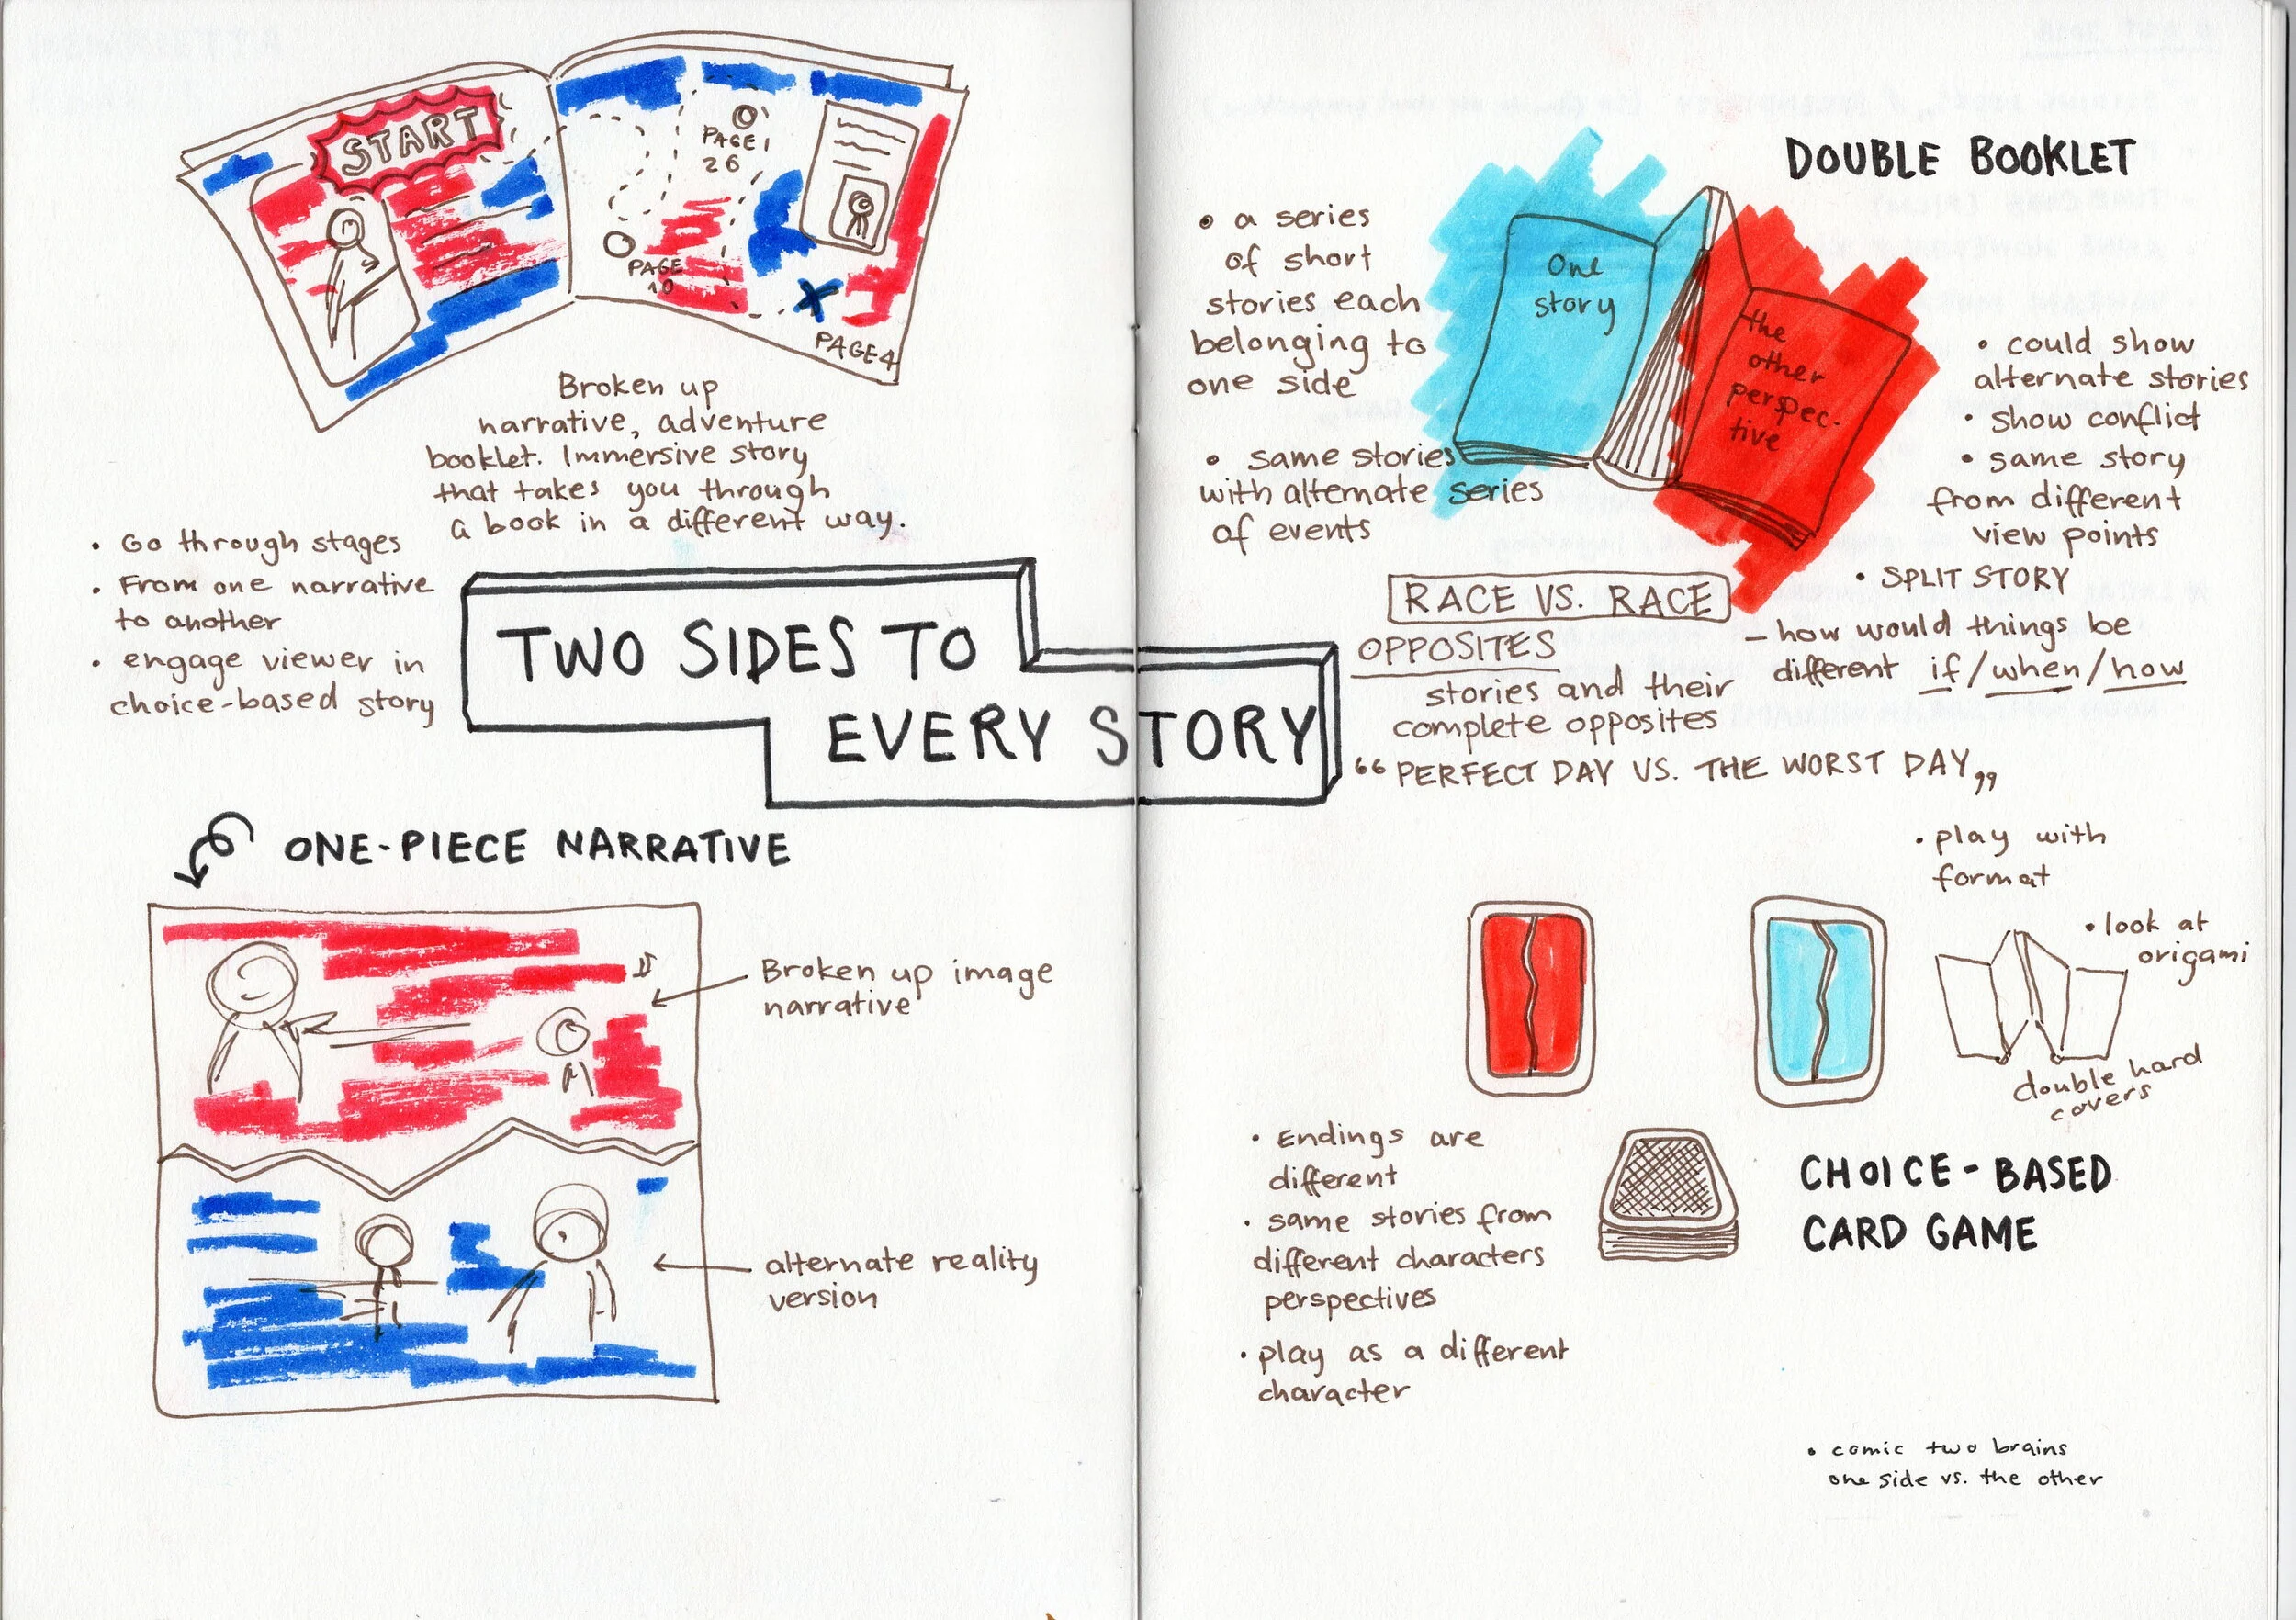 START
PAGE 1
26
PAGE
10
PAGE 4
Broken up
narrative, adventure
booklet. Immersive story
that takes you through
a book in a different way.
• Go through stages
• From one narrative
to another
• engage viewer in
choice-based story
TWO SIDES TO
EVERY STORY
ONE-PIECE NARRATIVE
Broken up image
narrative
alternate reality
version
DOUBLE BOOKLET
• a series
of short
stories each
belonging to
one side
• same stories
with alternate series
of events
One
story
the
other
perspec-
tive
• could show
alternate stories
• show conflict
• same story
from different
view points
• SPLIT STORY
– how would things be
different if/when/how
RACE VS. RACE
OPPOSITES
stories and their
complete opposites
“PERFECT DAY VS. THE WORST DAY„
• play with
format
• look at
origami
double hard
covers
• Endings are
different
• same stories from
different characters
perspectives
• play as a different
character
CHOICE-BASED
CARD GAME
• comic two brains
one side vs. the other